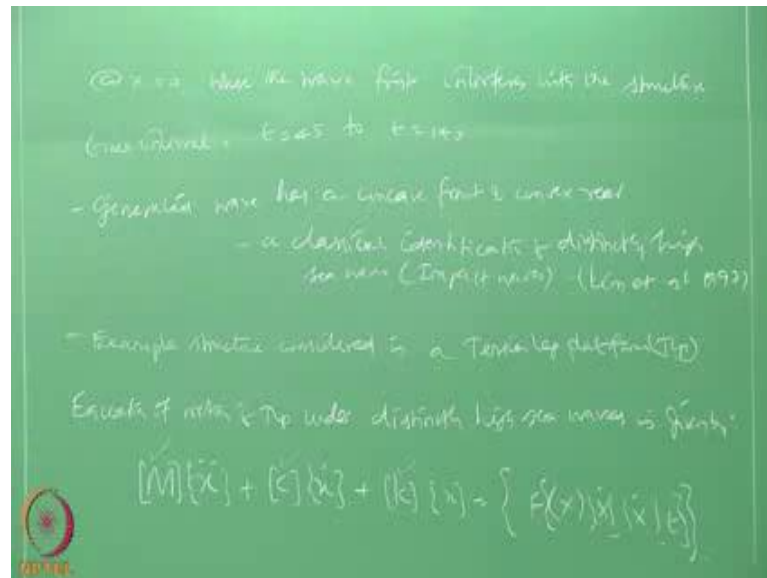 @ x = 0 when the wave first interferes with the structure
time interval, t = 45 to t = 145
- Generated wave has a concave front & convex rear
- a classical identification of distinctly high
sea waves (Impact waves) (Lin et al 1992)
- Example structure considered is a Tension leg platform (TLP)
Equation of motion of TLP under distinctly high sea waves is given by:
[M]{ẍ} + [C]{ẋ} + [K]{x} = { F(x) ẋ ẍ t }
NPTEL